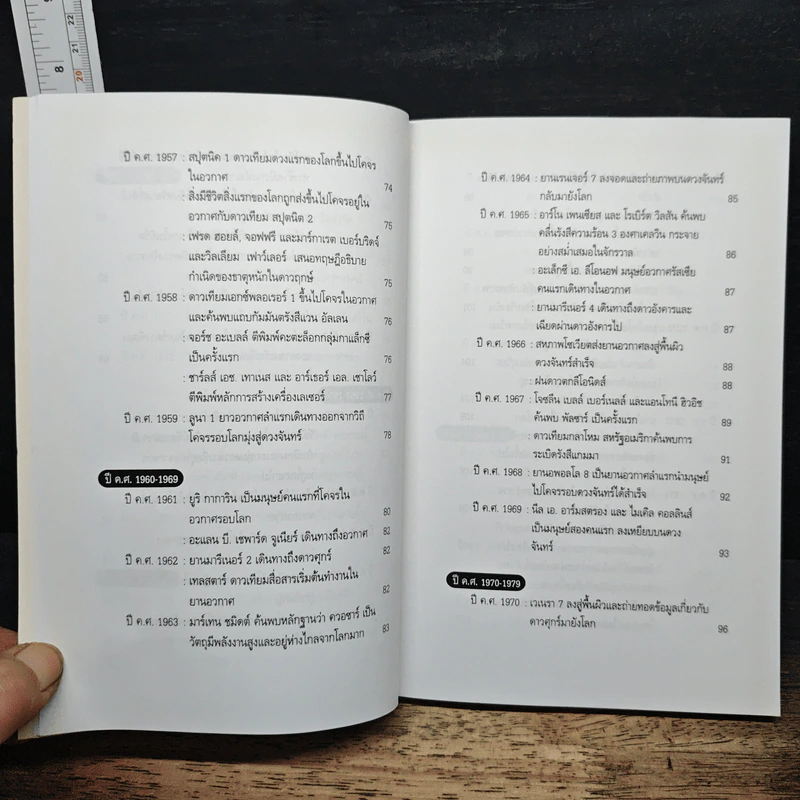 ปี ค.ศ. 1957 : สปุตนิค 1 ดาวเทียมดวงแรกของโลกขึ้นไปโคจร
ในอวกาศ 74
: สิ่งมีชีวิตสิ่งแรกของโลกถูกส่งขึ้นไปโคจรอยู่ใน
อวกาศกับดาวเทียม สปุตนิต 2 75
: เฟรด ฮอยล์, จอฟฟรี และมาร์กาเรต เบอร์บริดจ์
และวิลเลียม เฟาว์เลอร์ เสนอทฤษฎีอธิบาย
กำเนิดของธาตุหนักในดาวฤกษ์ 75
ปี ค.ศ. 1958 : ดาวเทียมเอกซ์พลอเรอร์ 1 ขึ้นไปโคจรในอวกาศ
และค้นพบแถบกัมมันตรังสีแวน อัลเลน 76
: จอร์ช อะเบลล์ ตีพิมพ์คะตะล็อกกลุ่มกาแล็กซี
เป็นครั้งแรก 76
: ชาร์ลส์ เอช. เทาเนส และ อาร์เธอร์ แอล. เชาโลว์
ตีพิมพ์หลักการสร้างเครื่องเลเซอร์ 77
ปี ค.ศ. 1959 : ลูนา 1 ยาวอวกาศลำแรกเดินทางออกจากวิถี
โคจรรอบโลกมุ่งสู่ดวงจันทร์ 78
ปี ค.ศ. 1960-1969
ปี ค.ศ. 1961 : ยูริ กาการิน เป็นมนุษย์คนแรกที่โคจรใน
อวกาศรอบโลก 80
: อะแลน บี. เชพาร์ด จูเนียร์ เดินทางถึงอวกาศ 82
ปี ค.ศ. 1962 : ยานมาริเนอร์ 2 เดินทางถึงดาวศุกร์ 82
: เทลสตาร์ ดาวเทียมสื่อสารเริ่มต้นทำงานใน
ยานอวกาศ 82
ปี ค.ศ. 1963 : มาร์เทน ชมิดต์ ค้นพบหลักฐานว่า ควอซาร์ เป็น
วัตถุมีพลังงานสูงและอยู่ห่างไกลจากโลกมาก 83
ปี ค.ศ. 1964 : ยานเรนเจอร์ 7 ลงจอดและถ่ายภาพบนดวงจันทร์
กลับมายังโลก 85
ปี ค.ศ. 1965 : อาร์โน เพนเซียส และ โรเบิร์ต วิลสัน ค้นพบ
คลื่นรังสีความร้อน 3 องศาเคลวิน กระจาย
อย่างสม่ำเสมอในจักรวาล 86
: อะเล็กซี เอ. ลีโอนอฟ มนุษย์อวกาศรัสเซีย
คนแรกเดินทางในอวกาศ 87
: ยานมารีเนอร์ 4 เดินทางถึงดาวอังคารและ
เฉียดผ่านดาวอังคารไป 87
ปี ค.ศ. 1966 : สหภาพโซเวียตส่งยานอวกาศลงสู่พื้นผิว
ดวงจันทร์สำเร็จ 88
: ฝนดาวตกลีโอนิดส์ 88
ปี ค.ศ. 1967 : โจซลีน เบลล์ เบอร์เนลล์ และแอนโทนี ฮิวอิช
ค้นพบ พัลซาร์ เป็นครั้งแรก 89
: ดาวเทียมกลาโหม สหรัฐอเมริกาค้นพบการ
ระเบิดรังสีแกมมา 91
ปี ค.ศ. 1968 : ยานอพอลโล 8 เป็นยานอวกาศลำแรกนำมนุษย์
ไปโคจรรอบดวงจันทร์ได้สำเร็จ 92
ปี ค.ศ. 1969 : นีล เอ. อาร์มสตรอง และ ไมเคิล คอลลินส์
เป็นมนุษย์สองคนแรก ลงเหยียบบนดวง
จันทร์ 93
ปี ค.ศ. 1970-1979
ปี ค.ศ. 1970 : เวเนรา 7 ลงสู่พื้นผิวและถ่ายทอดข้อมูลเกี่ยวกับ
ดาวศุกร์มายังโลก 96